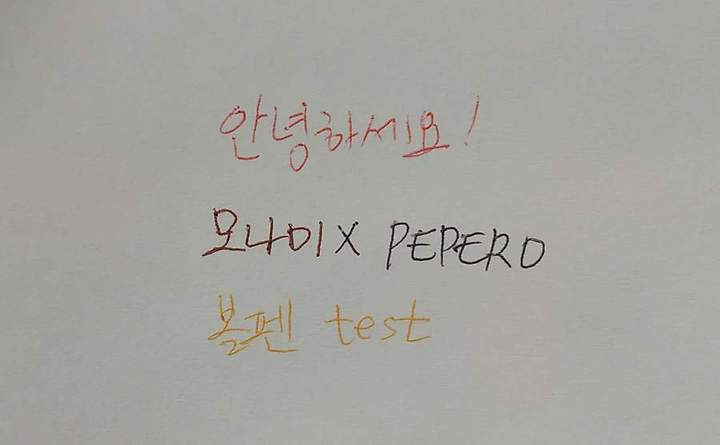 안녕하세요!
모나미 X PEPERO
볼펜 test